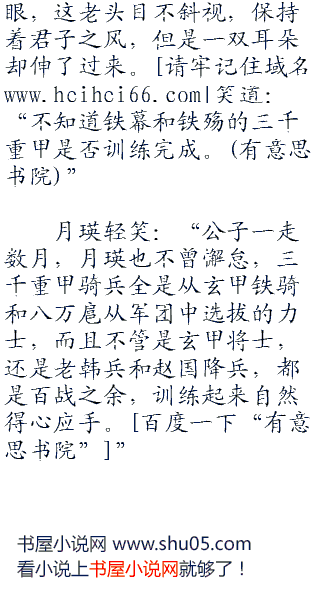 眼，这老头目不斜视，保持
着君子之风，但是一双耳朵
却伸了过来。[请牢记住域名
www.hcihci66.com|笑道：
“不知道铁幕和铁殇的三千
重甲是否训练完成。(有意思
书院)”
月瑛轻笑：“公子一走
数月，月瑛也不曾懈怠，三
千重甲骑兵全是从玄甲铁骑
和八万扈从军团中选拔的力
士，而且不管是玄甲将士，
还是老韩兵和赵国降兵，都
是百战之余，训练起来自然
得心应手。[百度一下“有意
思书院”]”
书屋小说网 www.shu05.com
看小说上书屋小说网就够了！